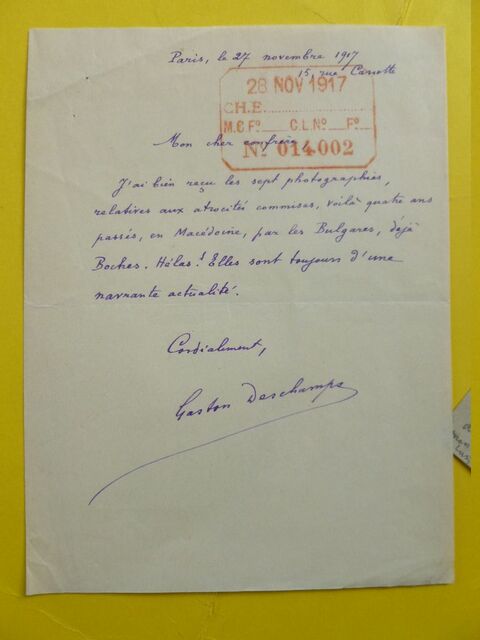 Paris, le 27 novembre 1917
15, rue Cassette
28 NOV 1917
CH.E.
M.C.Fº C.L.Nº Fº
Nº 014002
Mon cher confrère,
J'ai bien reçu les sept photographies,
relatives aux atrocités commises, voilà quatre ans
passés, en Macédoine, par les Bulgares, déjà
Boches. Hélas! Elles sont toujours d'une
navrante actualité.
Cordialement,
Gaston Deschamps